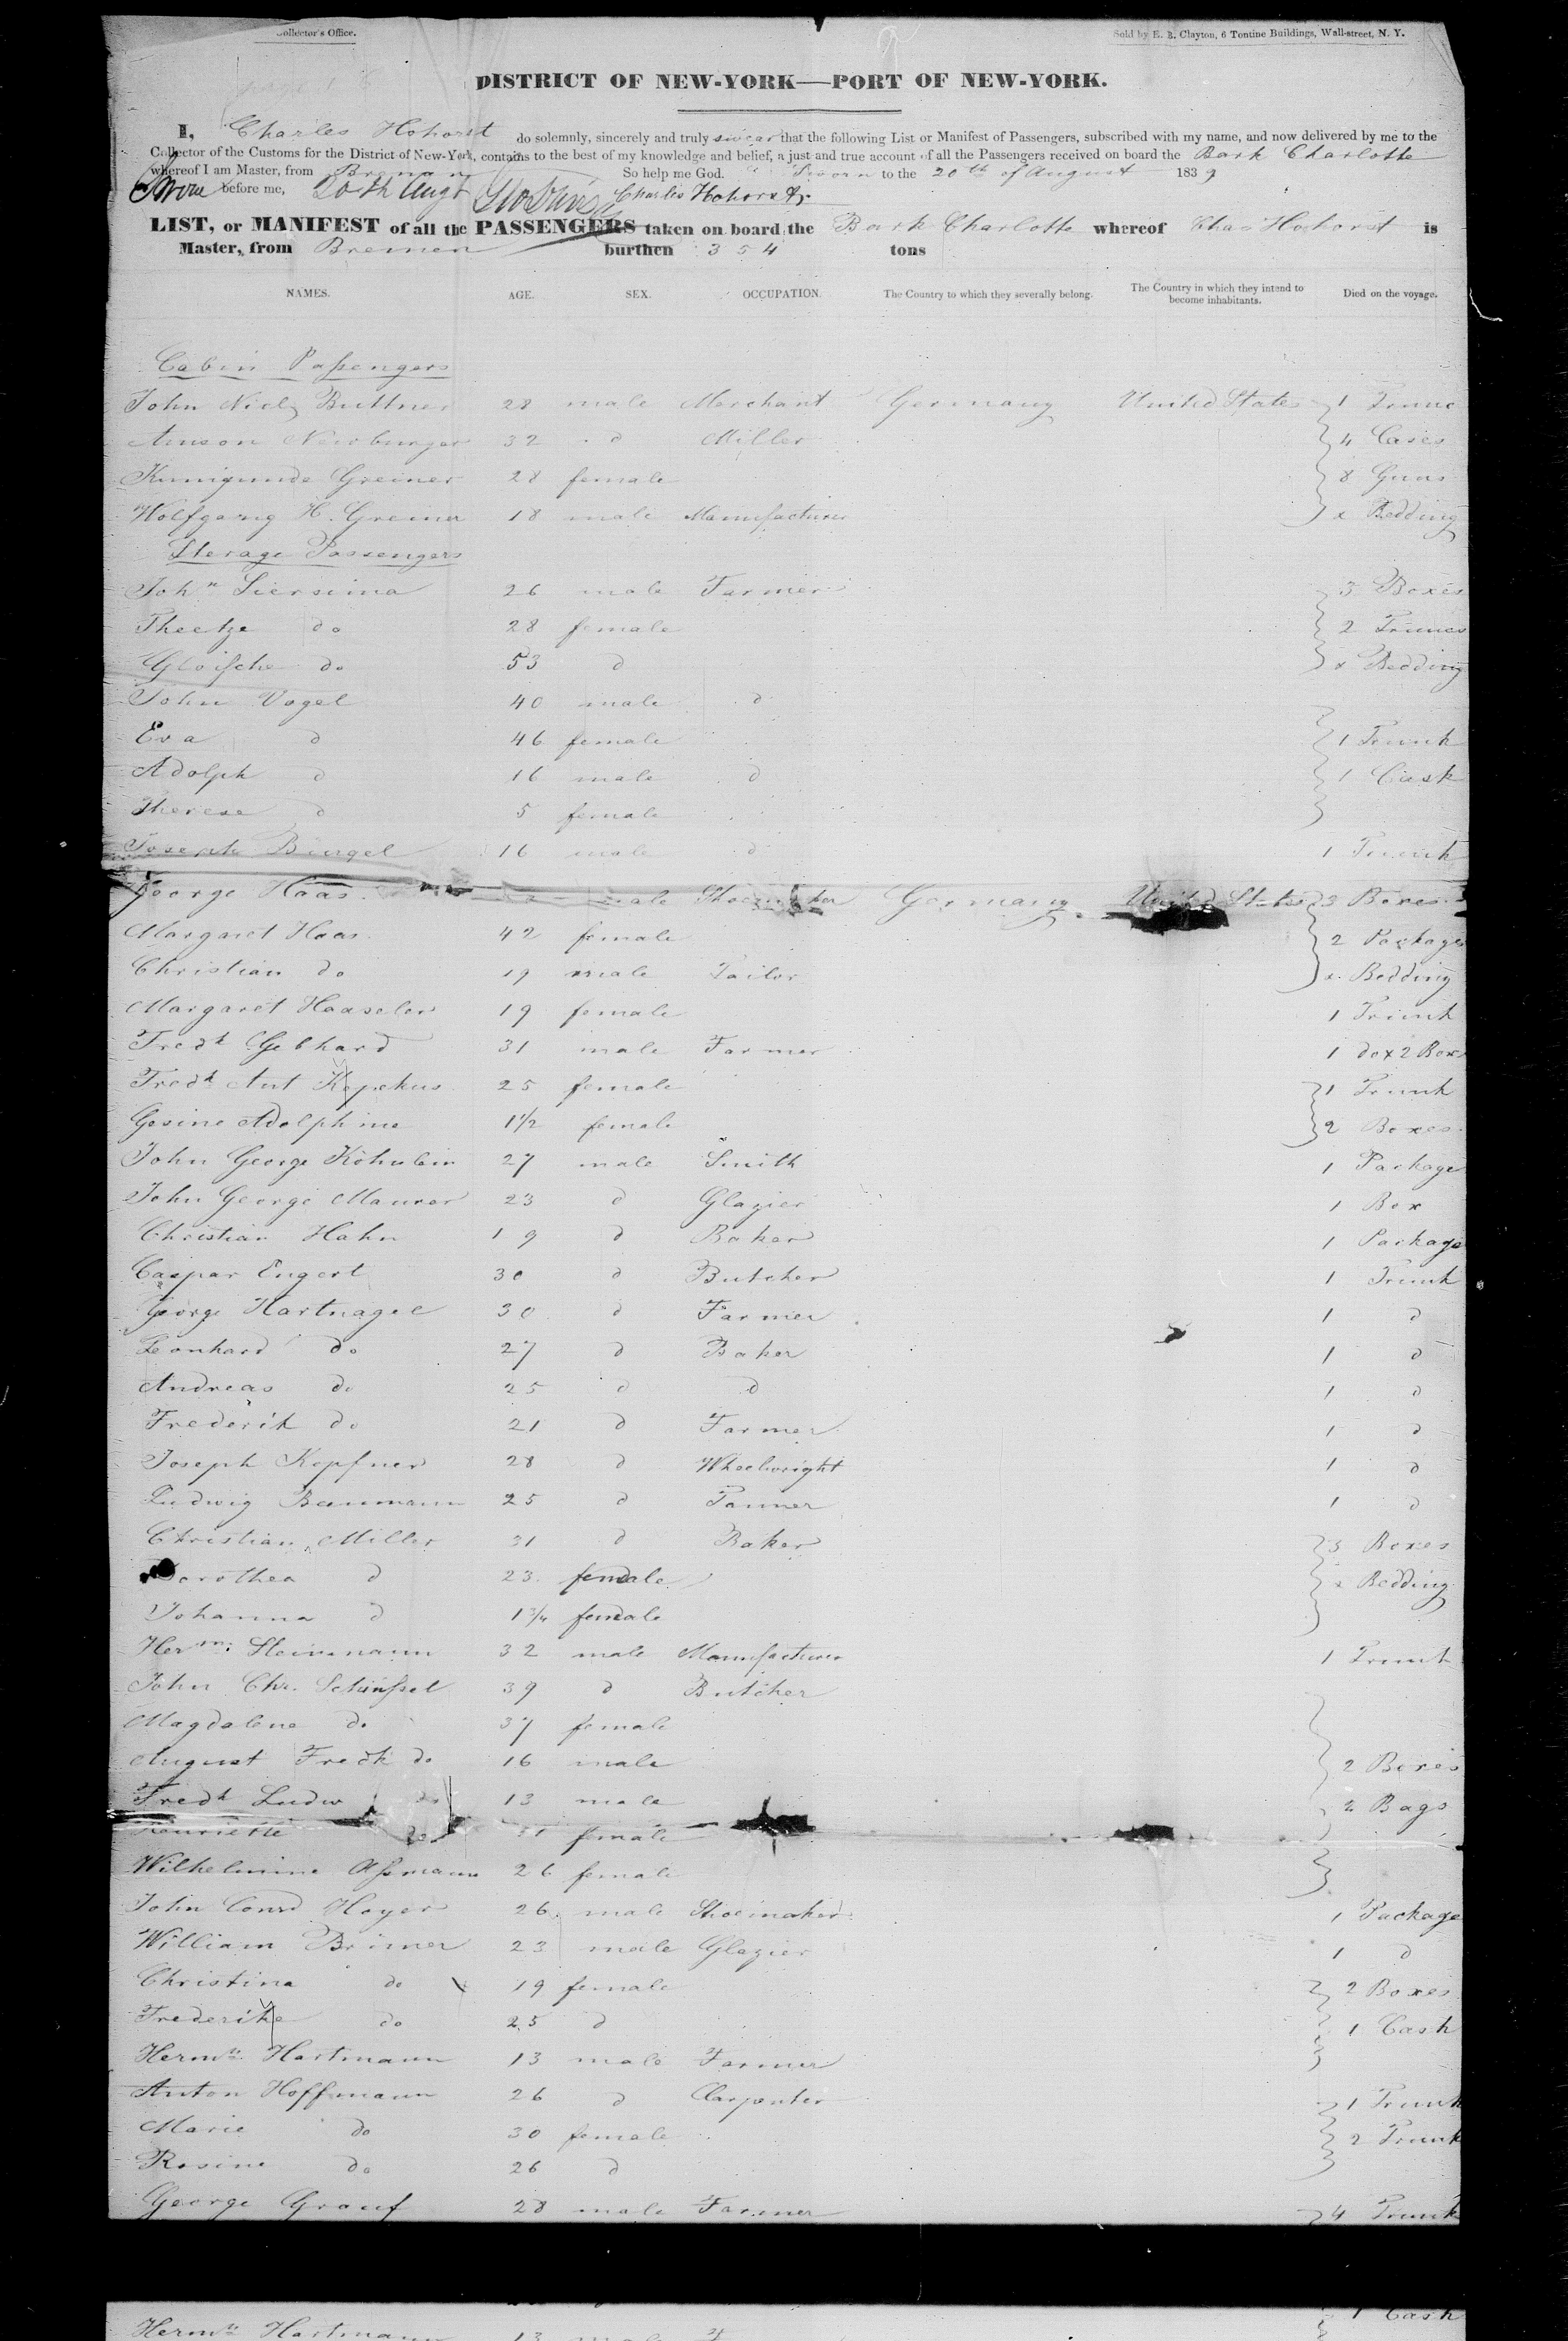 Collector's Office.
Sold by E. B. Clayton, 6 Tontine Buildings, Wall-street, N. Y.
DISTRICT OF NEW-YORK—PORT OF NEW-YORK.
I, Charles Hohorst do solemnly, sincerely and truly swear that the following List or Manifest of Passengers, subscribed with my name, and now delivered by me to the
Collector of the Customs for the District of New-York, contains to the best of my knowledge and belief, a just and true account of all the Passengers received on board the Bark Charlotte
whereof I am Master, from Bremen So help me God. Sworn to the 20th of August 1839
Sworn before me, 20th Augt Charles Hohorst
LIST, or MANIFEST of all the PASSENGERS taken on board the Bark Charlotte whereof Chas Hohorst is
Master, from Bremen burthen 354 tons
NAMES. AGE. SEX. OCCUPATION. The Country to which they severally belong. The Country in which they intend to become inhabitants. Died on the voyage.
Cabin Passengers
John Buttner 28 male Merchant Germany United States 1 Trunc
Newburger 32 d Miller 4 Cases
Kunigunde Greiner 28 female 8 Guns
Wolfgang H. Greiner 18 male Manufacturer x Bedding
Sterage Passengers
John Siersima 26 male Farmer 3 Boxes
Theetze do 28 female 2 Truncs
do 53 d x Bedding
John Vogel 40 male d
Eva d 46 female 1 Trunk
Adolph d 16 male d 1 Cask
Therese d 5 female
Joseph Bingel 16 male d 1 Trunk
George Haas male Shoemaker Germany United States 3 Boxes
Margaret Haas 42 female 2 Packages
Christian do 19 male Tailor x Bedding
Margaret Haaseler 19 female 1 Trunk
Fredk Gebhard 31 male Farmer 1 do x 2 Box
Fredk Ant Kopekus 25 female 1 Trunk
Gesine Adolphine 1 1/2 female 2 Boxes
John George Köhnlein 27 male Smith 1 Package
John George Maurer 23 d Glazier 1 Box
Christian Hahn 19 d Baker 1 Package
Caspar Engert 30 d Butcher 1 Trunk
George Hartnagel 30 d Farmer 1 d
Leonhard do 27 d Baker 1 d
Andreas do 25 d d 1 d
Frederik do 21 d Farmer 1 d
Joseph Kopfner 28 d Wheelwright 1 d
Ludwig Baumann 25 d Tanner 1 d
Christian Miller 31 d Baker 3 Boxes
Dorothea d 23 female x Bedding
Johanna d 1 3/4 female
Herm: Steinmann 32 male Manufacturer 1 Trunk
John Chr. Schüssel 39 d Butcher
Magdalene do 37 female
August Fredk do 16 male 2 Boxes
Fredk Ludw do 13 male 2 Bags
Henriette do 11 female
Wilhelmine Assmann 26 female
John Conrd Hoyer 26 male Shoemaker 1 Package
William Brimer 23 male Glazier 1 d
Christina do 19 female 2 Boxes
Frederike do 25 d 1 Cask
Hermn Hartmann 13 male Farmer
Anton Hoffmann 26 d Carpenter 1 Trunk
Marie do 30 female 2 Trunk
Rosine do 26 d
George Grauf 28 male Farmer 4 Trunk
1 Cask
Hermn Hartmann 13 male